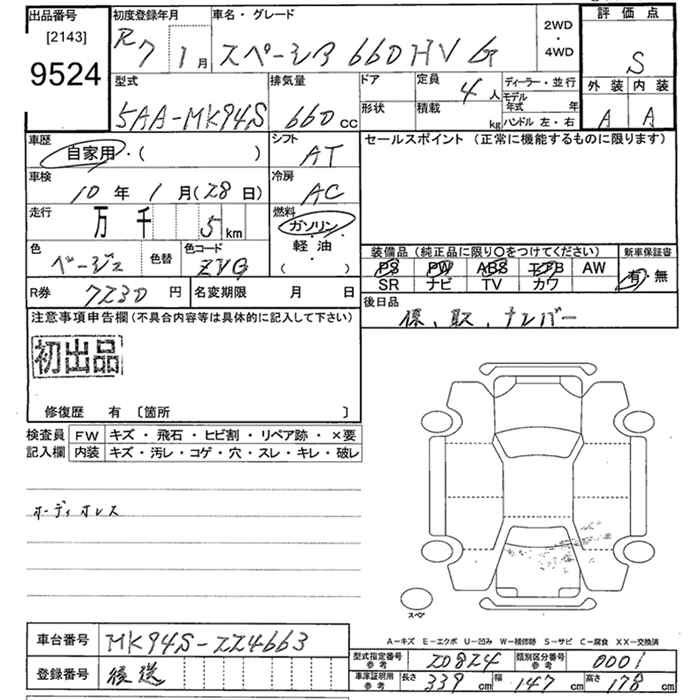 出品番号
[2143]
9524
初度登録年月
R7 1月
車名・グレード
スペーシア 660 HV G
2WD
・
4WD
評価点
S
外装 内装
A A
型式
5AA-MK94S
排気量
660 cc
ドア
形状
定員
4人
積載
kg
ディーラー・並行
モデル年式 年
ハンドル 左・右
車歴
自家用・( )
シフト
AT
セールスポイント(正常に機能するものに限ります)
車検
10年1月(28日)
冷房
AC
走行
万 千 5km
燃料
ガソリン・
軽油・
( )
色
ベージュ
色替
色コード
ZVG
装備品(純正品に限り○をつけてください)
PS PW ABS エアB AW
SR ナビ TV カワ
新車保証書
有・無
R券 7230円
名変期限 月 日
後日品
保、取、ナンバー
注意事項申告欄(不具合内容等は具体的に記入して下さい)
初出品
修復歴 有 〔箇所 〕
検査員記入欄
FW キズ・飛石・ヒビ割・リペア跡・×要
内装 キズ・汚レ・コゲ・穴・スレ・キレ・破レ
オーディオレス
スペア
A−キズ E−エクボ U−凹み W−補修跡 S−サビ C−腐食 XX−交換済
車台番号 MK94S-224663
登録番号 後送
型式指定番号 参考 20824
類別区分番号 参考 0001
車庫証明用 参考 長さ 339cm 幅 147cm 高さ 178cm